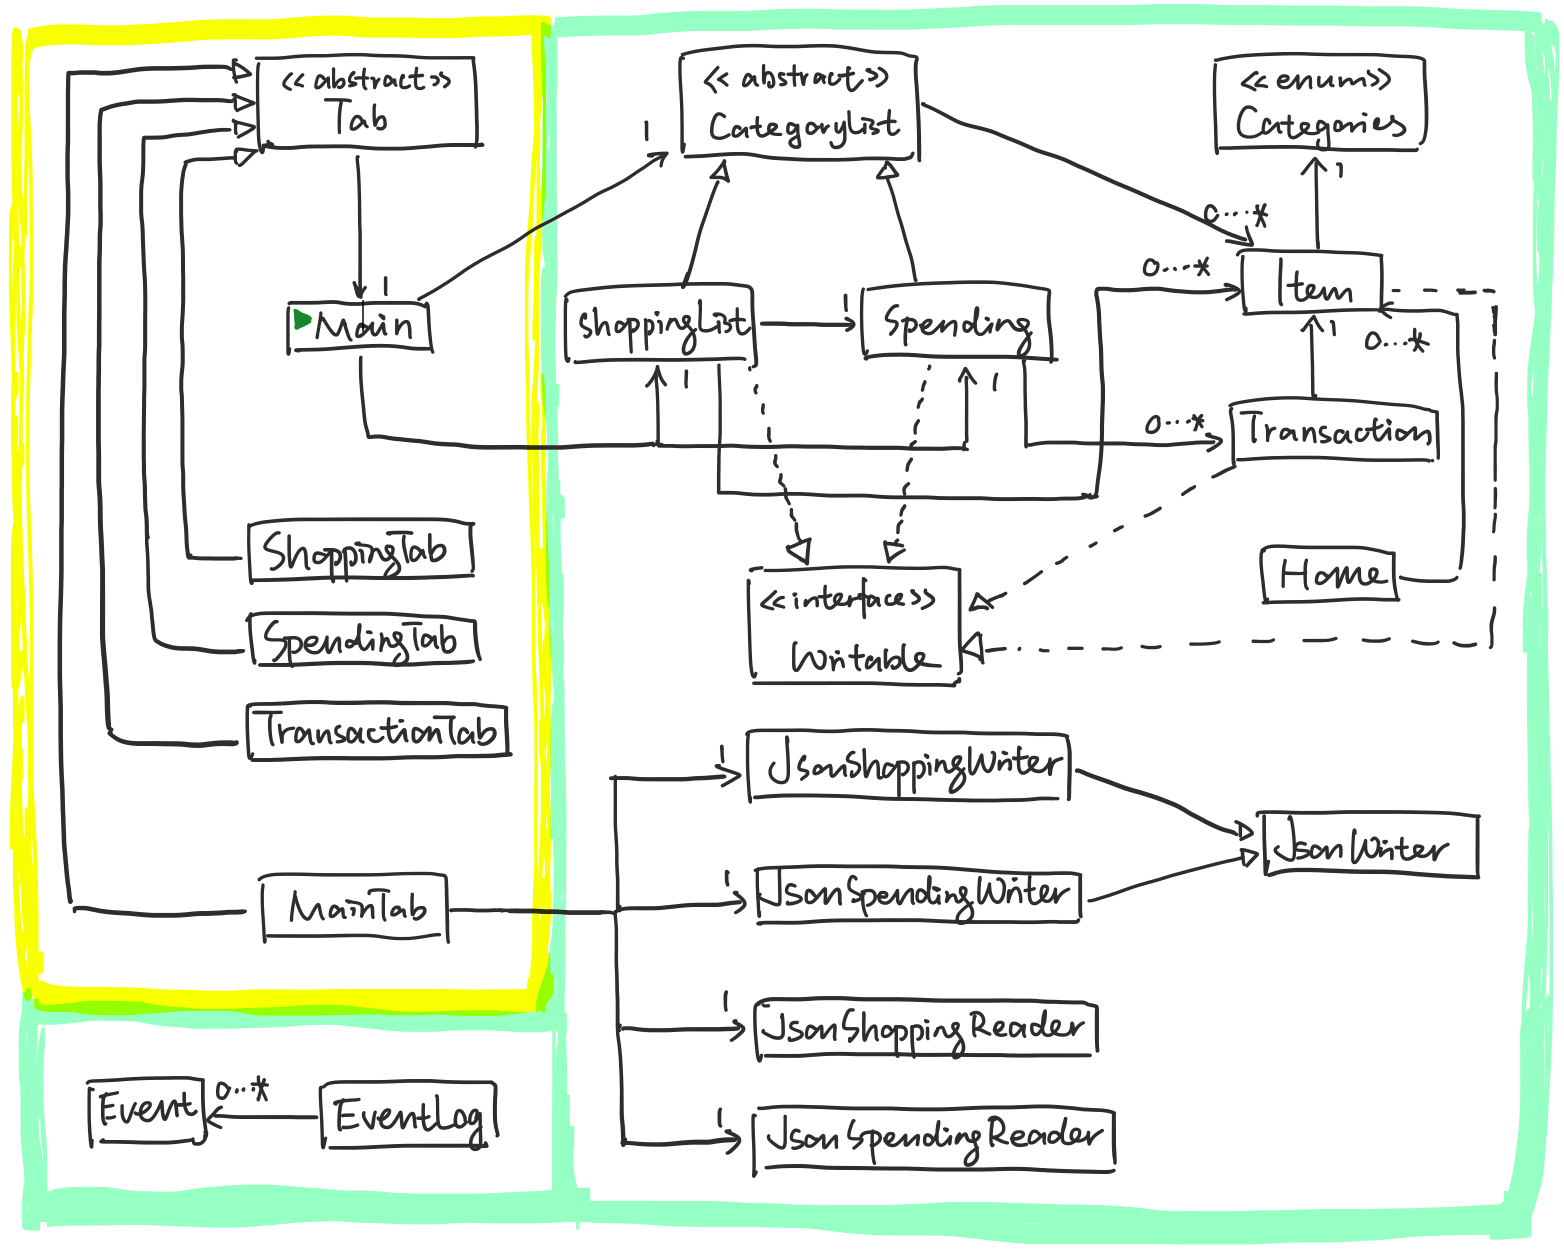 <<abstract>>
Tab
1
▶Main
ShoppingTab
SpendingTab
TransactionTab
MainTab
<<abstract>>
CategoryList
1
0...*
<<enum>>
Categories
1
0...*
Item
0...*
1
ShoppingList
1
Spending
1
1
0...*
Transaction
Home
<<interface>>
Writable
1
JsonShoppingWriter
1
JsonSpendingWriter
JsonWriter
1
JsonShoppingReader
1
JsonSpendingReader
Event
0...*
EventLog